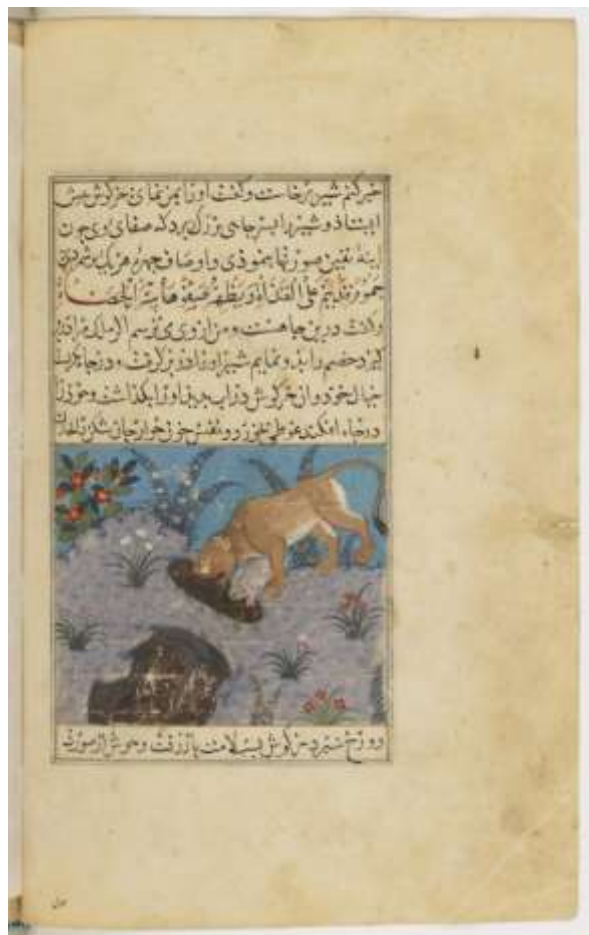 خبر کنم شیر برخاست و گفت او را بمن نمای خرگوش پیش
ایستاذ و شیر را بسر چاهی بزرگ برد که صفای وی چون
اینهٔ یقین صورتها بنموذی و اوصاف چهرهٔ هر یک بر شمردی
جموم علی القذاة و یظهر صفوها الحصاء
و گفت درین چاهست و من از وی می‌ترسم اگر ملک مرا در بر
گیرد خصم را بذو نمایم شیر او را در بر گرفت و در چاه نگریست
خیال خوذ و آن خرگوش در آب بدید او را بگذاشت و خوذ را
در چاه افکند غوطی بخورد و نفس خونخوار جان
دوزخ سپرد خرگوش بسلامت باز رفت وحوش از صورت